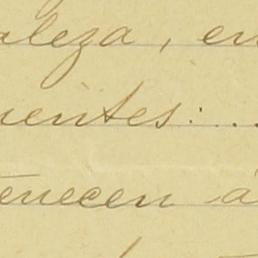 aleza, en
uentes:..
tenecen á